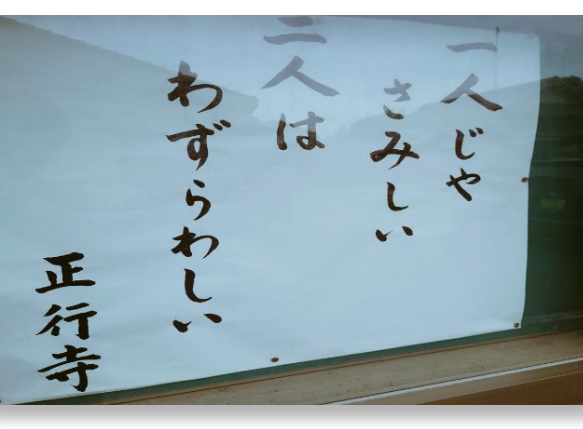 一人じゃ
さみしい
三人は
わずらわしい
正行寺